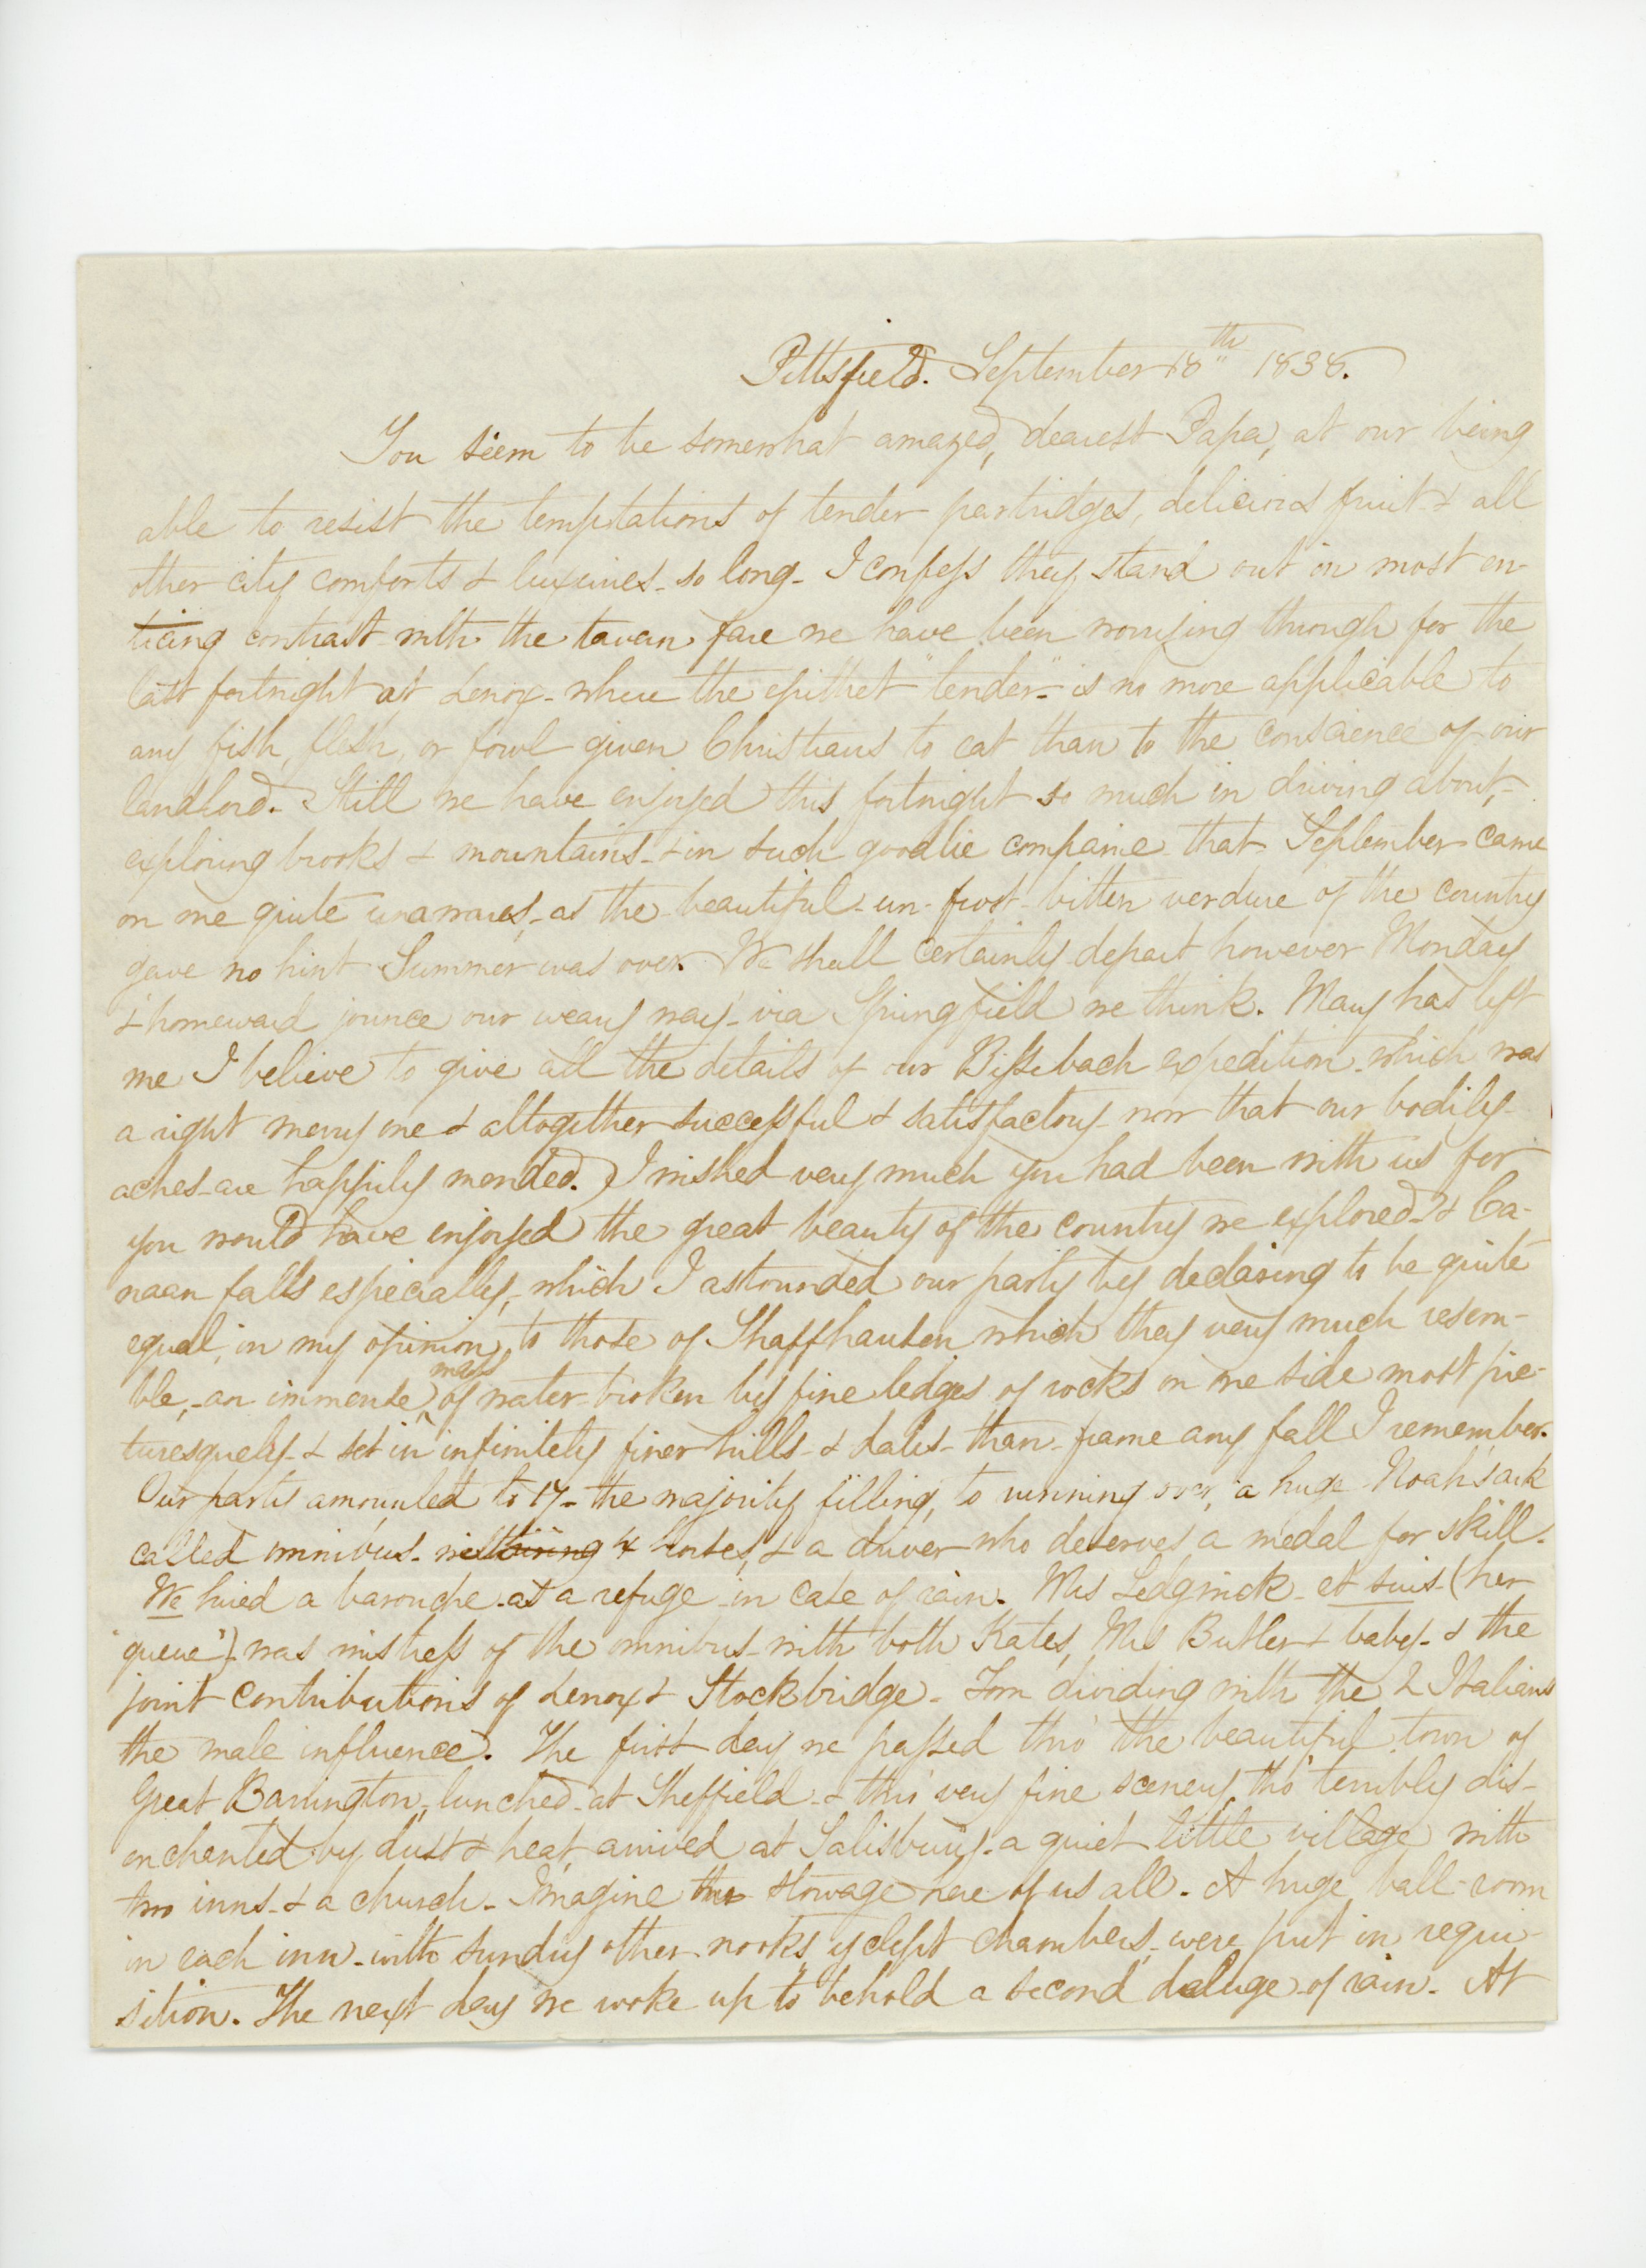 Pittsfield. September 18th 1838.
You seem to be somewhat amazed, dearest Papa, at our being
able to resist the temptations of tender partridges, delicious fruit & all
other city comforts & luxuries - so long - I confess they stand out in most en-
ticing contrast with the tavern fare we have been worrying through for the
last fortnight at Lenox - where the epithet "tender" - is no more applicable to
any fish, flesh, or fowl given Christians to eat than to the conscience of our
landlord. Still we have enjoyed this fortnight so much in driving about, -
exploring brooks & mountains - & in such goodlie companie that September came
on me quite unawares, - as the beautiful - un-frost-bitten verdure of the country
gave no hint Summer was over. We shall certainly depart however Monday
& homeward jounce our weary way - via Springfield we think. Mary has left
me I believe to give all the details of our Bissebach expedition - which was
a right merry one & altogether successful & satisfactory - now that our bodily
aches - are happily mended. I wished very much you had been with us for
you would have enjoyed the great beauty of the country we explored - & Ca-
naan falls especially, - which I astounded our party by declaring to be quite
equal, in my opinion, to those of Shaffhausen which they very much resem-
ble, - an immense mass of water broken by fine ledges of rocks on one side most pic-
turesquely - & set in infinitely finer hills - & dales - than frame any fall I remember.
Our party amounted to 17 - the majority filling, to running over, a huge Noah's ark
called omnibus - 4 horses, & a driver who deserves a medal for skill -
We hired a barouche - as a refuge in case of rain. Mrs Sedgwick - et suis - (her
"queue") - was mistress of the omnibus - with both Kates, Mrs Butler & baby - & the
joint contributions of Lenox & Stockbridge - Tom dividing with the 2 Italians
the male influence. The first day we passed thro' the beautiful town of
Great Barrington, lunched - at Sheffield - & thro' very fine scenery, tho' terribly dis-
enchanted by dust & heat, arrived at Salisbury - a quiet little village with
two inns - & a church - Imagine the stowage here of us all. A huge ball-room
in each inn - with sundry other nooks, yclept chambers, - were put in requi-
sition. The next day we woke up to behold a second deluge of rain - At